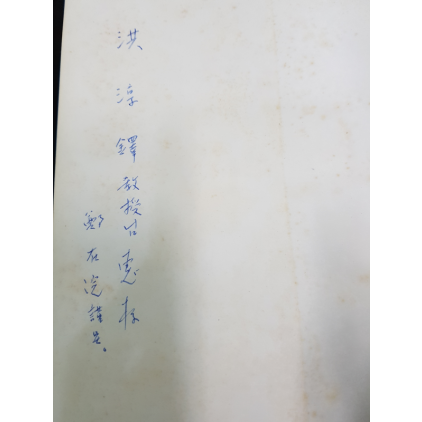 洪淳鐸教授惠存
鄭在浣謹呈。